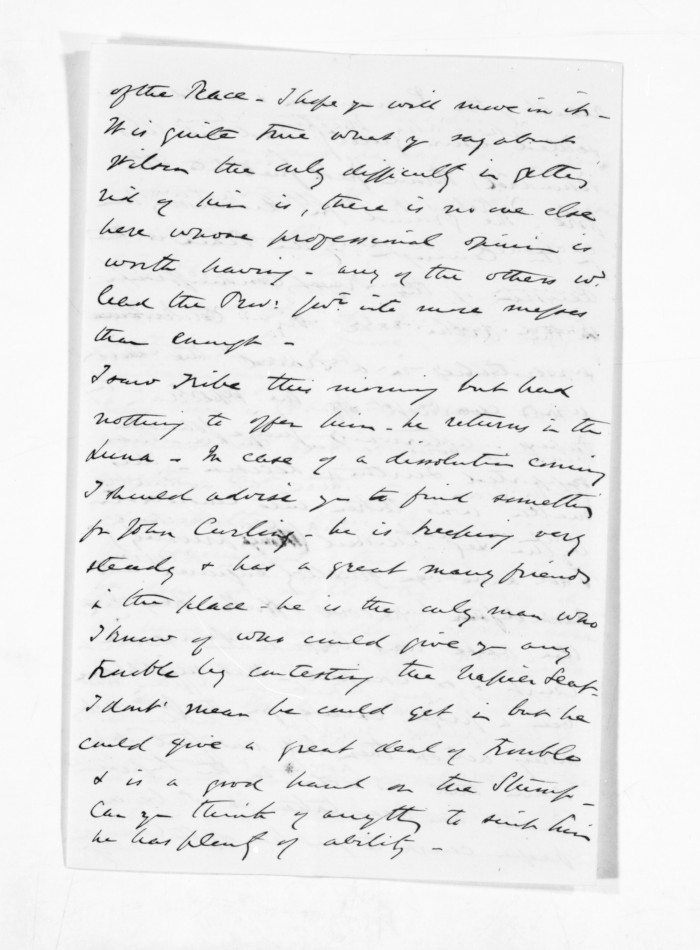 of the Peace - I hope yr will move in it -
It is quite true what y say about
Wilson the only difficulty in getting
rid of him is, there is no one else
here whose professional opinion is
worth having - any of the others wd.
lead the Prov: Govt. into more messes
than enough -
I saw Tribe this morning but had
nothing to offer him - he returns in the
Luna - In case of a dissolution coming
I should advise yr to find something
for John Curling - he is keeping very
steady & has a great many friends
in the place - he is the only man who
I know of who could give yr any
trouble by contesting the Napier Seat -
I dont' mean he could get in but he
could give a great deal of trouble
& is a good hand on the Stump -
Can yr think of anything to suit him
he has plenty of ability -